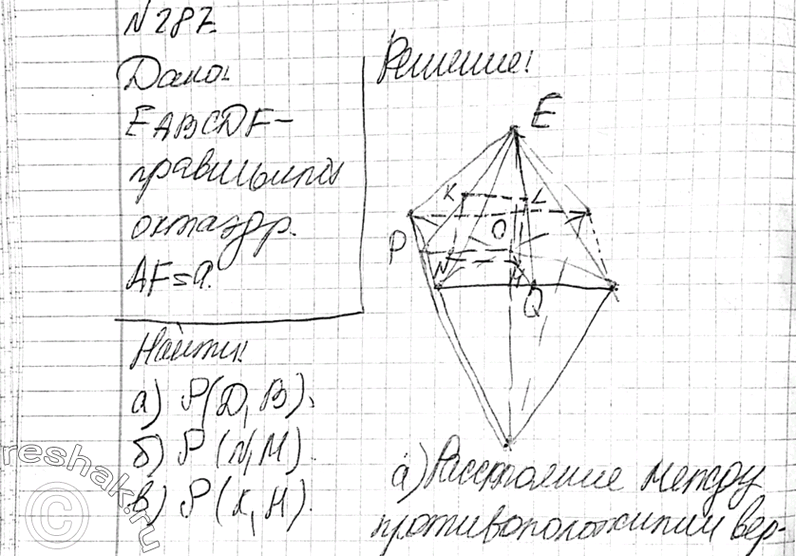 N 287.
Дано:
EABCDF–
правильный
октаэдр.
AF=a.
Найти:
а) ρ(D, B).
б) ρ(N, M).
в) ρ(K, H).
Решение:
E
K
L
P
O
N
H
Q
а) Расстояние между
противоположными вер-
reshak.ru
©